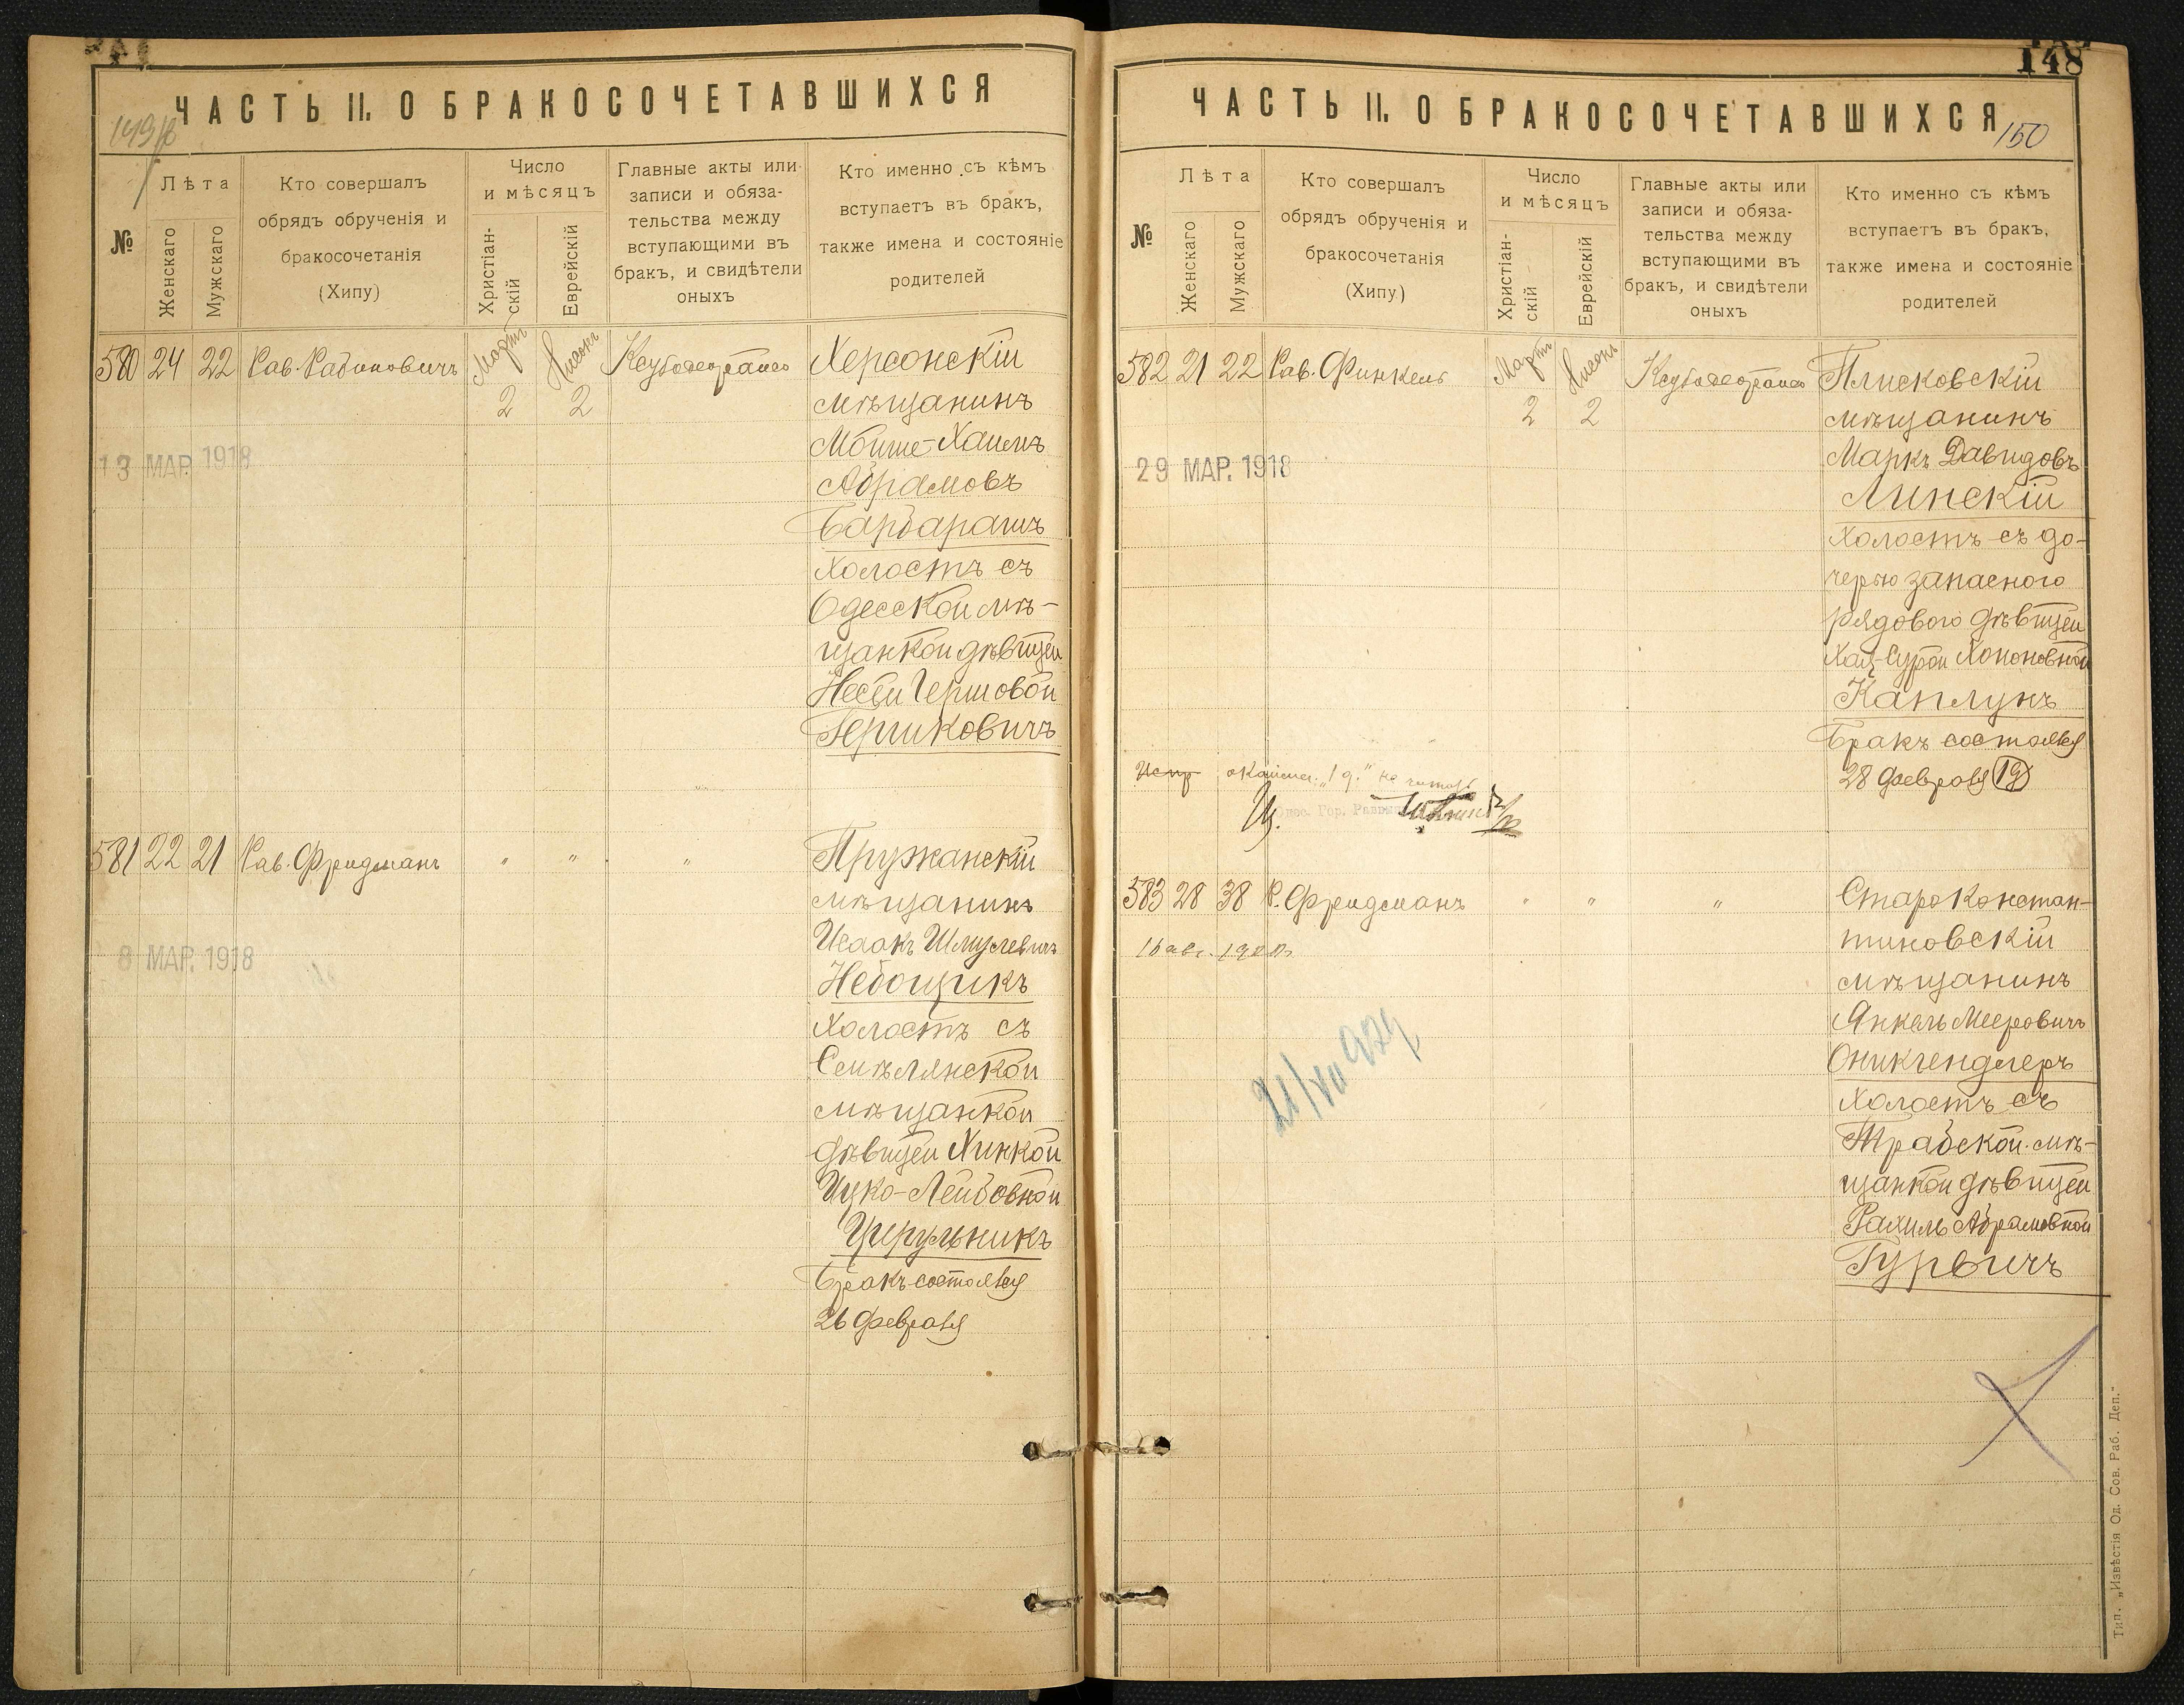 ЧАСТЬ II. О БРАКОСОЧЕТАВШИХСЯ
№
Лѣта
Женскаго
Мужскаго
Кто совершалъ
обрядъ обрученія и
бракосочетанія
(Хипу)
Число
и мѣсяцъ
Христіан-
скій
Еврейскій
Главные акты или
записи и обяза-
тельства между
вступающими въ
бракъ, и свидѣтели
оныхъ
Кто именно съ кѣмъ
вступаетъ въ бракъ,
также имена и состояніе
родителей
580 24 22 Рав. Рабиновичъ Мартъ 2 Нисонъ 2
Херсонскій
мѣщанинъ
Мойше-Хаимъ
Абрамовъ
Барбарашъ
холостъ съ
Одесской мѣ-
щанкой дѣвицей
Несей Гершовой
Гершковичъ
13 МАР. 1918
581 22 21 Рав. Фридманъ " " "
Пружанскій
мѣщанинъ
Исаакъ Шмулевичъ
Небощикъ
холостъ съ
Смѣлянской
мѣщанкой
дѣвицей Хинкой
Ицко-Лейбовной
Цирульникъ
Бракъ состоялся
26 февраля
8 МАР. 1918
148
ЧАСТЬ II. О БРАКОСОЧЕТАВШИХСЯ
150
№
Лѣта
Женскаго
Мужскаго
Кто совершалъ
обрядъ обрученія и
бракосочетанія
(Хипу)
Число
и мѣсяцъ
Христіан-
скій
Еврейскій
Главные акты или
записи и обяза-
тельства между
вступающими въ
бракъ, и свидѣтели
оныхъ
Кто именно съ кѣмъ
вступаетъ въ бракъ,
также имена и состояніе
родителей
582 21 22 Рав. Финкель Мартъ 2 Нисонъ 2
Плисковскій
мѣщанинъ
Маркъ Давидовъ
Линскій
холостъ съ до-
черью запасного
рядового дѣвицей
Хая-Сурой Хононовной
Каплунъ
Бракъ состоялся
28 февраля
29 МАР. 1918
583 28 38 Р. Фридманъ " " "
Староконстан-
тиновскій
мѣщанинъ
Янкель Мееровичъ
Оникгендлеръ
холостъ съ
Трабской мѣ-
щанкой дѣвицей
Рахиль Абрамовной
Гурвичъ
Тип. „Извѣстія Од. Сов. Раб. Деп."